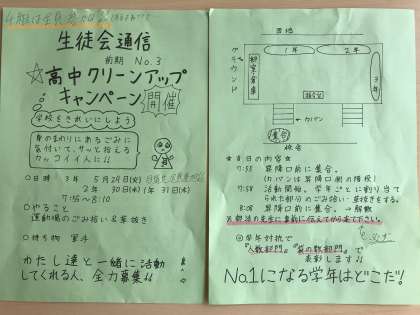 生徒会通信
前期 No.3
☆高中クリーンアップ
キャンペーン 開催
学校をきれいにしよう
身のまわりにあるごみに
気付いて、サッと拾える
カッコイイ人に!!
○日時 3年 5月29日(火)
2年 30日(水) 1年 31日(木)
7:55〜8:10
○やること
運動場のごみ拾い&草抜き
○持ち物 軍手
わたし達と一緒に活動
してくれる人、全力募集!!
グラウンド
1年
2年
3年
カバン
集合
校舎
★当日の内容★
7:55 昇降口前に集合。
(カバンは昇降口側の階段)
7:58 活動開始。学年ごとに割り当て
られた部分のごみ拾い・草抜きをする。
8:08 昇降口前に集合。→解散
※部活の先生に事前に伝えてから来て下さい。
◎学年対抗で
『人数部門』『袋の数部門』で
表彰します!!
No.1になる学年はどこだ!